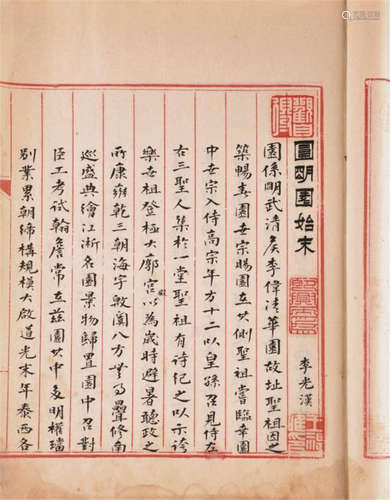 圓明園始末
李老漢
園係明武清矦李偉清華園故址聖祖因之
築暢春園世宗賜園在其側聖祖嘗臨幸園
中世宗入侍高宗年方十二以皇孫召見侍左
右三聖人集於一堂聖祖有詩紀之以示誇
樂世祖登極大廓宮以爲歲時避暑聽政之
所康雍乾三朝海宇敉寧八方無事疊修南
巡盛典繪江浙名園景物歸置園中召對
臣工考試翰詹常在茲園其中多明權璫
別業累朝締構規模大啟道光末年泰西各